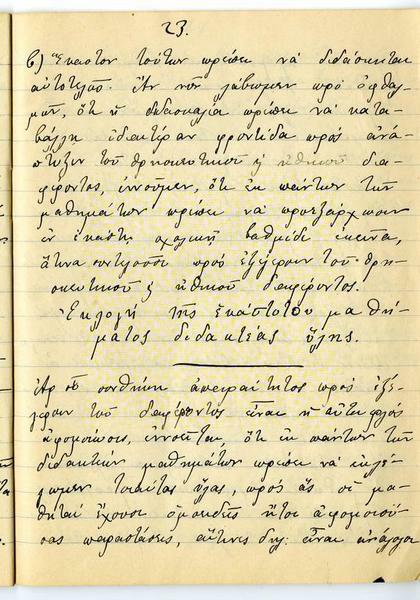 23.
β) Ἕκαστον τούτων πρέπει νὰ διδάσκηται
αὐτοτελῶς. Ἂν νῦν λάβωμεν πρὸ ὀφθαλ-
μῶν, ὅτι ἡ διδασκαλία πρέπει νὰ κατα-
βάλλῃ ἰδιαιτέραν φροντίδα πρὸς ἀνά-
πτυξιν τοῦ θρησκευτικοῦ ἠθικοῦ δια-
φέροντος, ἐννοοῦμεν, ὅτι ἐκ πάντων τῶν
μαθημάτων πρέπει νὰ προεξάρχωσιν
ἐν ἑκάστῃ σχολικῇ βαθμίδι ἐκεῖνα,
ἅτινα συντελοῦσι πρὸς ἐξέγερσιν τοῦ θρη-
σκευτικοῦ ἠθικοῦ διαφέροντος.
Ἐκλογὴ τῆς ἑκάστοτε μαθή-
ματος διδακτέας ὕλης.
Ἀφ' οὗ συνθήκη ἀπαραίτητος πρὸς ἐξέ-
γερσιν τοῦ διαφέροντος εἶναι ἡ
ἀφομοίωσις, ἐννοεῖται, ὅτι ἐκ πάντων τῶν
διδακτέων μαθημάτων πρέπει νὰ ἐκλέ-
γωμεν τοιαύτας ὕλας, πρὸς ἃς οἱ μα-
θηταὶ ἔχουσι ὁμοειδεῖς ἤτοι ἀφομοιού-
σας παραστάσεις, αἵτινες δηλ. εἶναι ἀνάλογοι